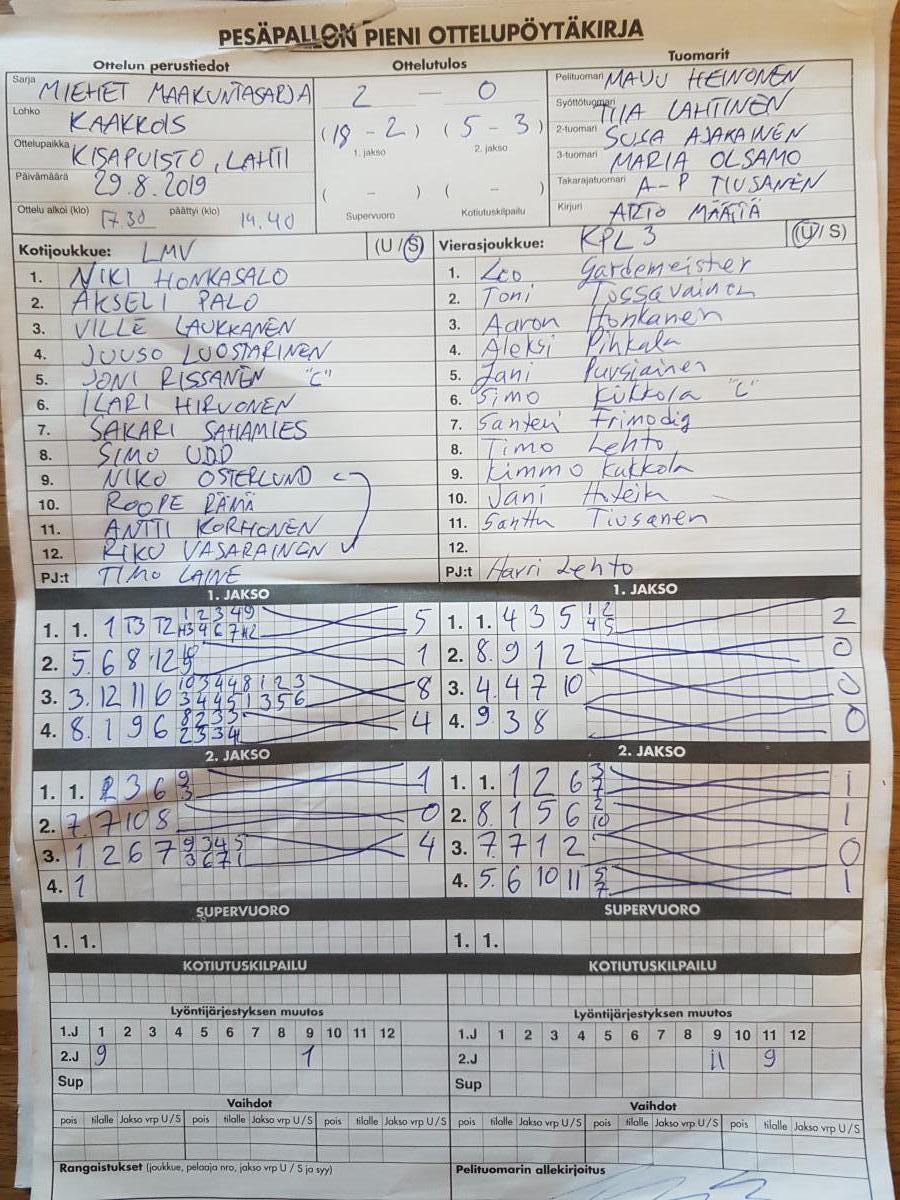 PESÄPALLON PIENI OTTELUPÖYTÄKIRJA
Ottelun perustiedot
Sarja MIEHET MAAKUNTASARJA
Lohko KAAKKOIS
Ottelupaikka KISAPUISTO, LAHTI
Päivämäärä 29.8.2019
Ottelu alkoi (klo) 17.30 päättyi (klo) 19.40
Ottelutulos
2 — 0
(18 - 2) (5 - 3)
1. jakso 2. jakso
( - ) ( - )
Supervuoro Kotiutuskilpailu
Tuomarit
Pelituomari MAUU HEINONEN
Syöttötuomari TIIA LAHTINEN
2-tuomari SUSA AJAKAINEN
3-tuomari MARIA OLSAMO
Takarajatuomari A-P TIUSANEN
Kirjuri ARTO MÄÄTTÄ
Kotijoukkue: LMV (U/S)
1. NIKI HONKASALO
2. AKSELI PALO
3. VILLE LAUKKANEN
4. JUUSO LUOSTARINEN
5. JONI RISSANEN "C"
6. ILARI HIRVONEN
7. SAKARI SAHAMIES
8. SIMO UDD
9. NIKO OSTERLUND
10. ROOPE RÄMÄ
11. ANTTI KORHONEN
12. RIKU VASARAINEN
PJ:t TIMO LAINE
Vierasjoukkue: KPL 3 (U/S)
1. Leo Gardemeister
2. Toni Tossavainen
3. Aaron Honkanen
4. Aleksi Pihkala
5. Jani Pursiainen
6. Simo Kukkola "C"
7. Santeri Frimodig
8. Timo Lehto
9. Kimmo Kukkola
10. Jani
11. Santtu Tiusanen
12.
PJ:t Harri Lehto
1. JAKSO
1. 1. 1 T3 T2 5
2. 5. 6 8 12 1
3. 3. 12 11 6 10 3 4 4 8 1 2 3 8
3 4 4 5 1 3 5 6
4. 8. 1 9 6 8 2 3 3 4
2 3 3 4
1. JAKSO
1. 1. 4 3 5 1 2 2
4 5
2. 8. 9 1 2 0
3. 4. 4 7 10 0
4. 9. 3 8 0
2. JAKSO
1. 1. 2 3 6 9 1
3
2. 7. 7 10 8 0
3. 1 2 6 7 9 3 4 5 4
3 6 7 1
4. 1
2. JAKSO
1. 1. 1 2 6 3 1
7
2. 8. 1 5 6 2 1
10
3. 7. 7 1 2 0
4. 5. 6 10 11 5 1
7
SUPERVUORO
1. 1.
SUPERVUORO
1. 1.
KOTIUTUSKILPAILU
KOTIUTUSKILPAILU
Lyöntijärjestyksen muutos
1.J 1 2 3 4 5 6 7 8 9 10 11 12
2.J 9 1
Sup
Lyöntijärjestyksen muutos
1.J 1 2 3 4 5 6 7 8 9 10 11 12
2.J 11 9
Sup
Vaihdot
pois tilalle Jakso vrp U/S pois tilalle Jakso vrp U/S pois tilalle Jakso vrp U/S
Vaihdot
pois tilalle Jakso vrp U/S pois tilalle Jakso vrp U/S pois tilalle Jakso vrp U/S
Rangaistukset (joukkue, pelaaja nro, jakso vrp U / S ja syy)
Pelituomarin allekirjoitus